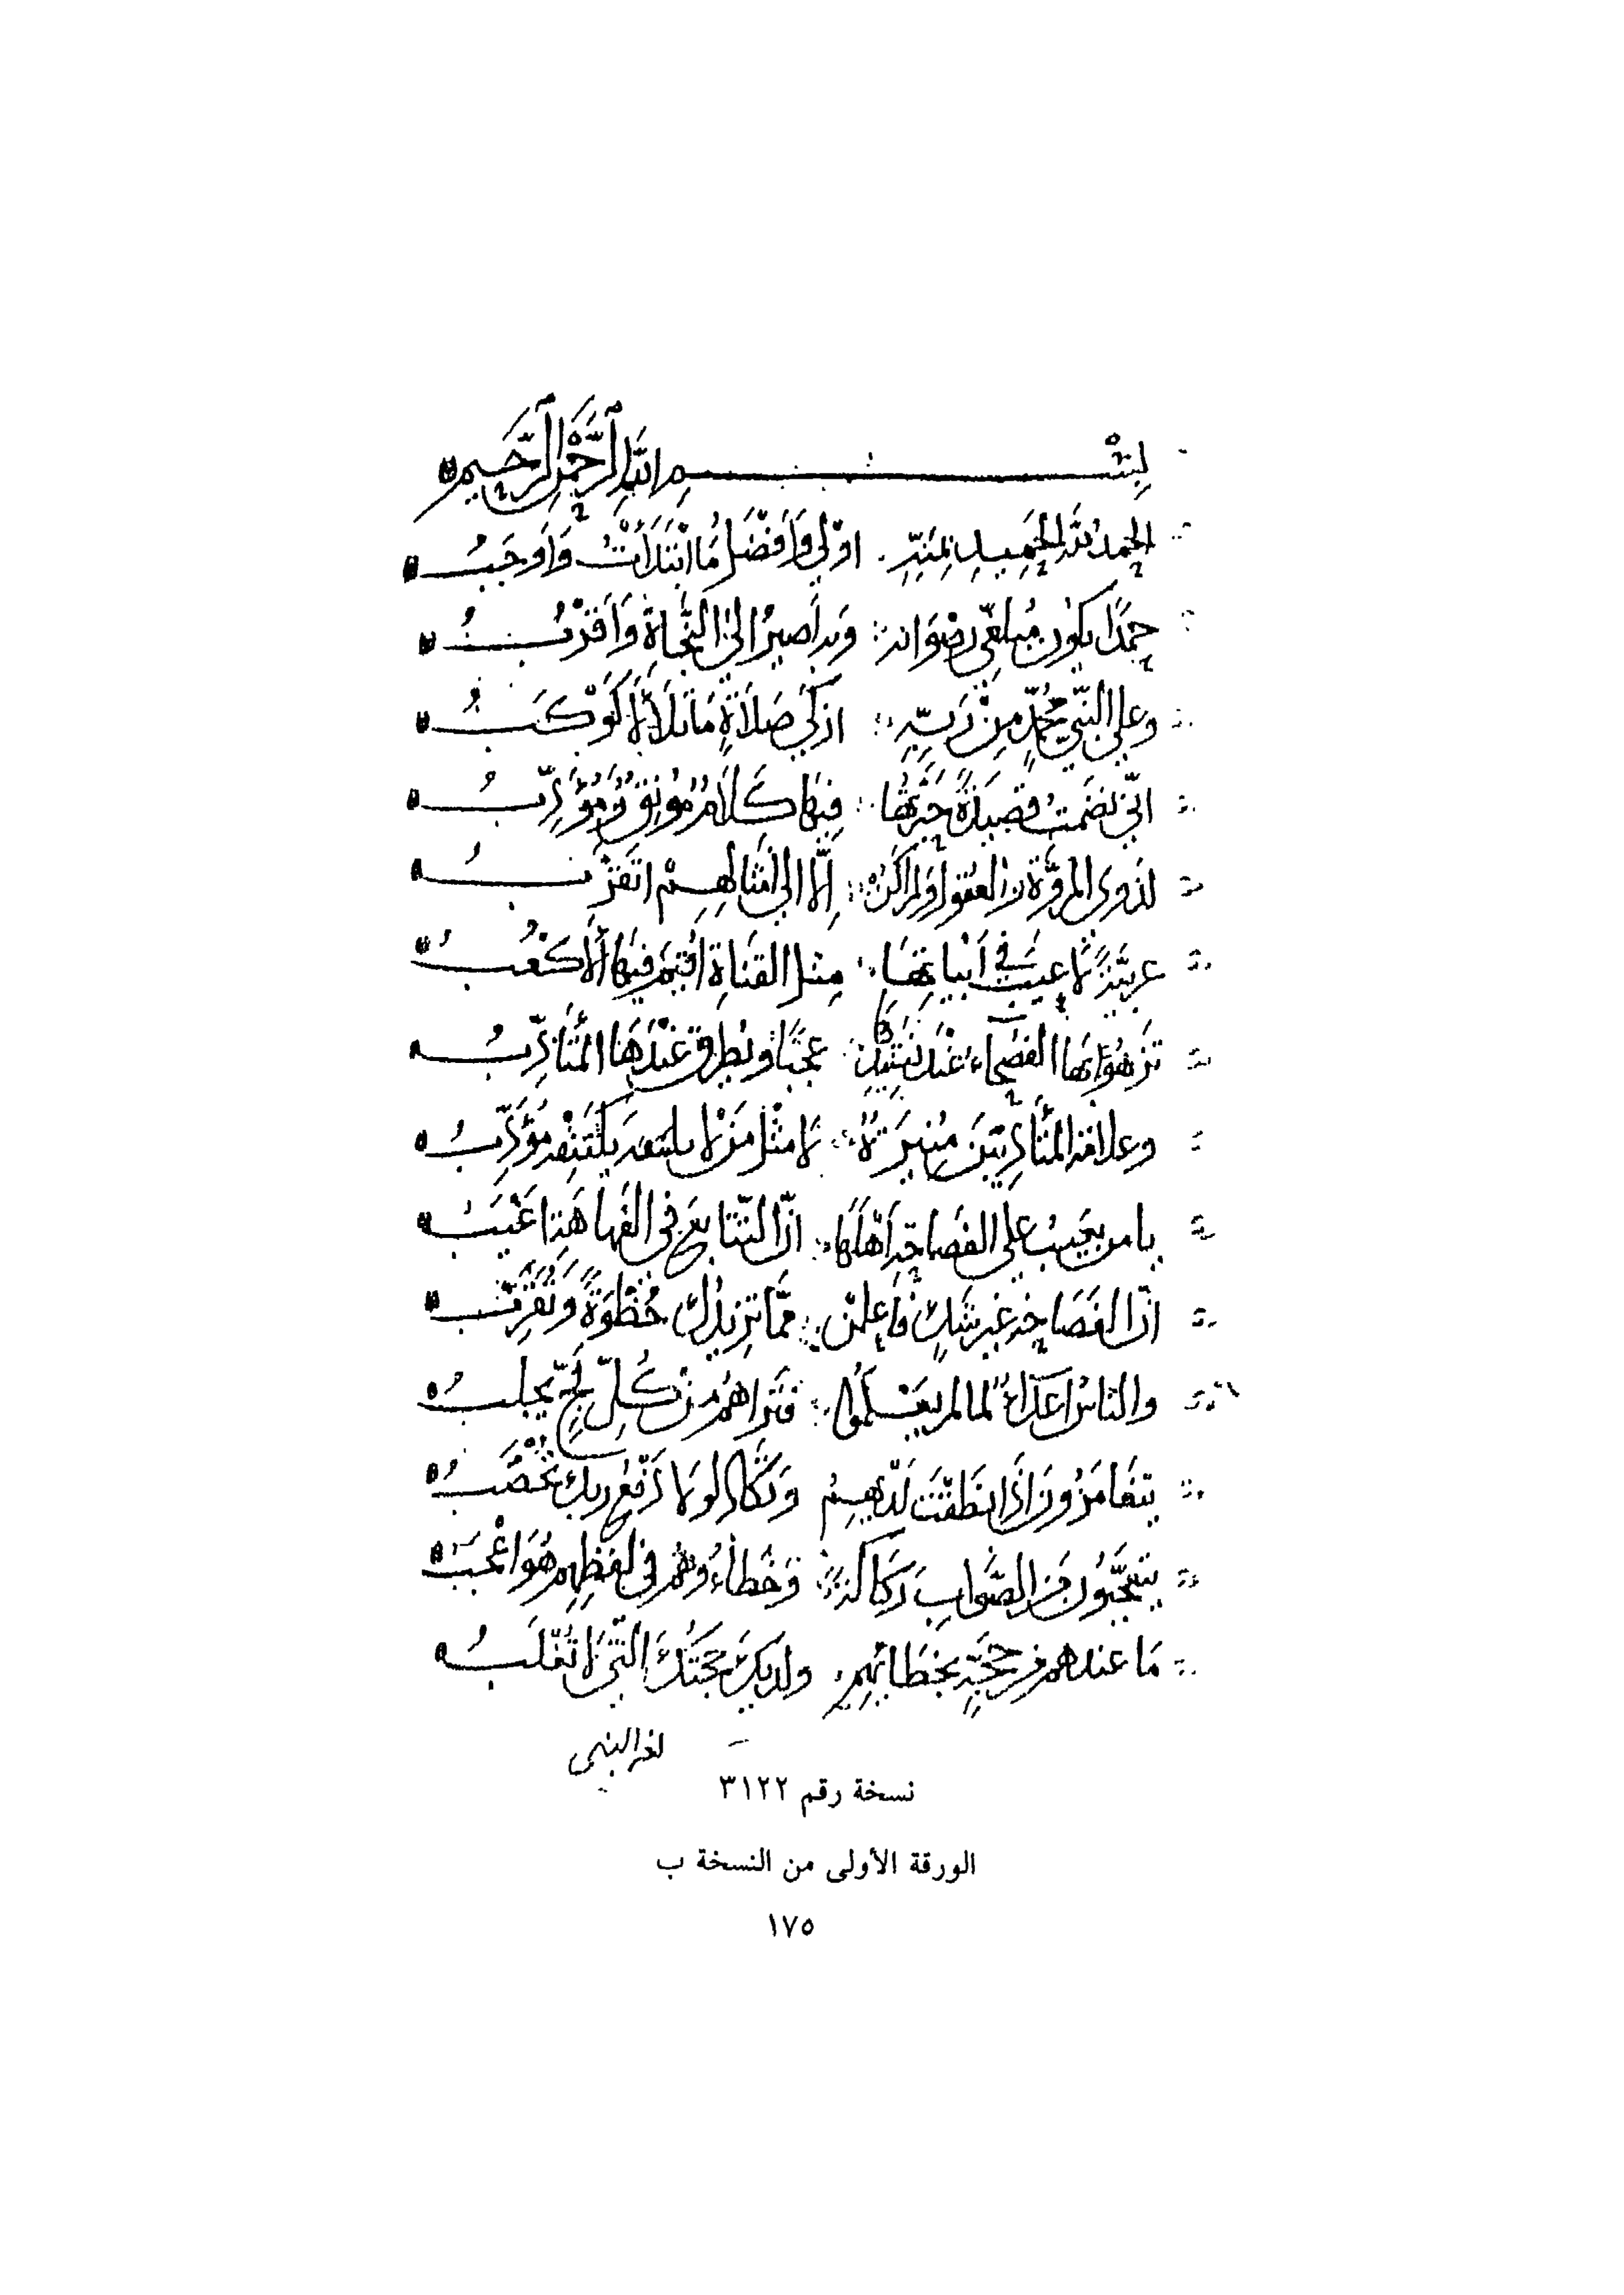 بِسْمِ اللَّهِ الرَّحْمٰنِ الرَّحِيمِ
الحمدُ للَّه الحَمِيدِ بِمَنِّهِ أوْلى وَأَفْضَلُ مَا ابْتَدَأْتُ وَأَوجَبُ
حَمْدًا يكونُ مُبلغِّى رِضْوَانه وَبه أصيرُ إلى النَّجَاةِ وَأقْرَبُ
وعلى النَّبيِّ مُحَمَّدٍ مِنْ رَبِّهِ ازكَى صَلَاةٍ مَا تَلَأْلَأَ كَوْكَبُ
انّى نضمتُ قصيدَةً حَبَّرْتُهَا فيهَا كَلَامٌ مُونِقٌ وَمُؤَدِّبُ
لذوى المروَّة والعقول ولم أكنْ إلَّا الى امْثَالهِمْ اتقَرَّبُ
عربيَّةً لَا عيبَ فى أبْيَاتِهَا مِثل القنَاةِ أقيمَ فيهَا الأكْعُبُ
تَزْهُوا بها الفصَحَاءُ عنْدَ نَشِيدِهَا عجبًا ويُطرق عنْدَهَا المتَأَدِّبُ
وعلامة المتأدِّبينَ مُنِيرَةٌ لَا مثْل مَنْ لا يلتقه مُؤَدِّبُ
يا من يعيبُ على الفصَاحَةِ أهْلَهَا انّ التتَابع فى الفهاهَة اعْيَبُ
انّ الفصَاحَة غير شكٍ فاعلمنْ ممَّا تزيدُكَ حُظْوَةً وتُقَرِّبُ
والناسُ اعدَاءٌ لما لم يعْلَمُوا فتَرَاهُمُ مِنْ كُلِّ فجٍّ يجلبُ
يتغامَزُونَ إذَا نَطَقْتَ لَدَيْهِمُ وَتكَادُ لولَا دَفْعُ ربك تُحْصَبُ
يتعَجَّبُونَ مِنَ الصَّوَابِ رَكَاكَةً وَخَطَاءُهُمْ فى لفظِهِمْ هُوَ اعْجَبُ
مَا عندهم مِنْ حجَّةٍ بخطَائِهِمْ ولديكَ حجَّتُكَ الَّتِى لَا تُغْلَبُ
لغة النبى
نسخة رقم ٣١٢٢
الورقة الأولى من النسخة ب
١٧٥